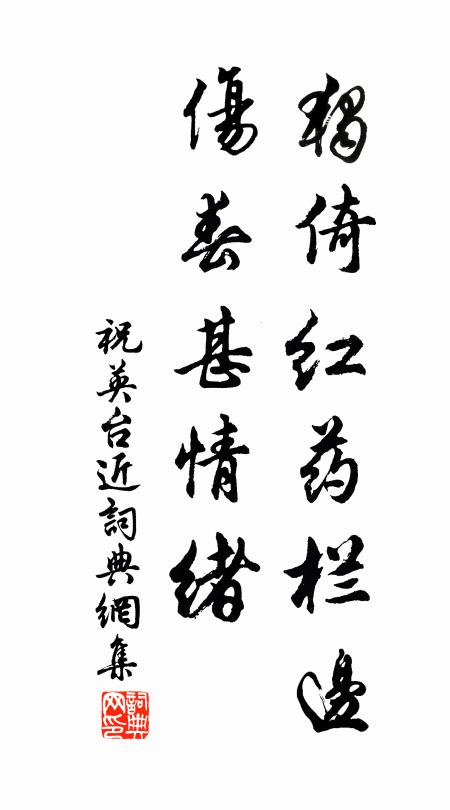 獨倚红药栏邊
傷春甚情緒
祝英台近詞典網集
詞典网印